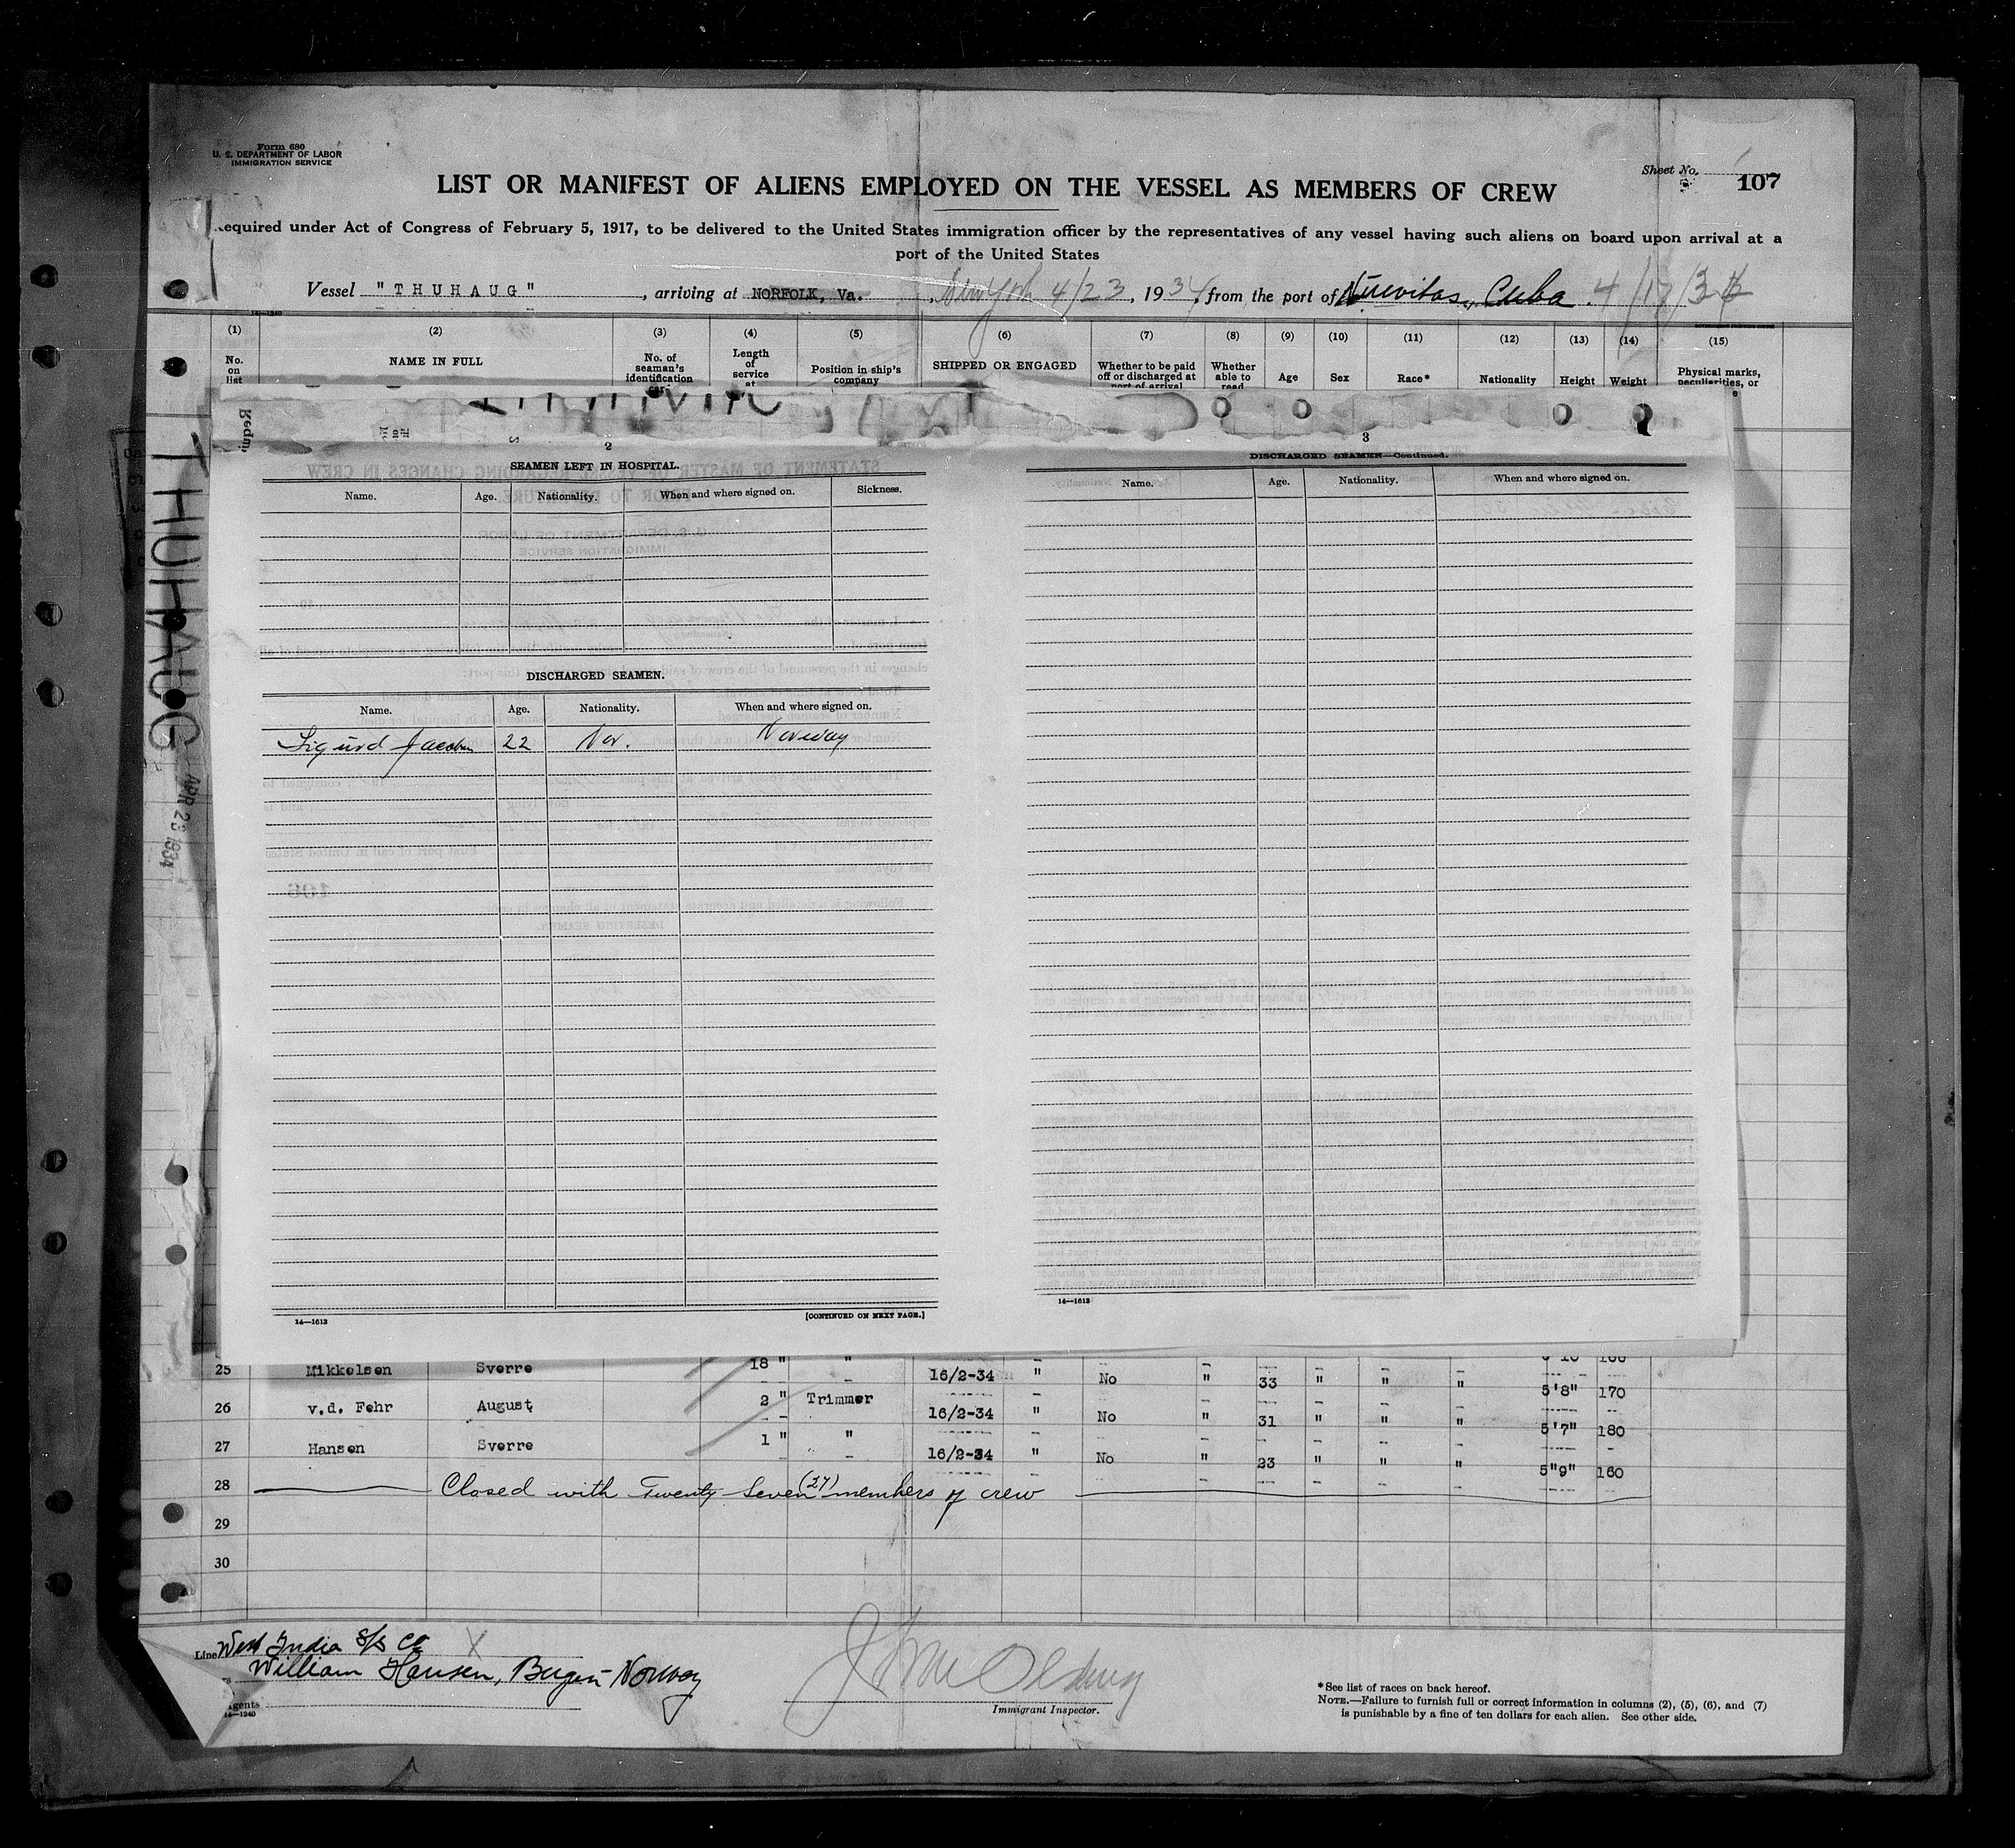 Form 680
U. S. DEPARTMENT OF LABOR
IMMIGRATION SERVICE
Sheet No.
107
LIST OR MANIFEST OF ALIENS EMPLOYED ON THE VESSEL AS MEMBERS OF CREW
equired under Act of Congress of February 5, 1917, to be delivered to the United States immigration officer by the representatives of any vessel having such aliens on board upon arrival at a
port of the United States
Vessel "THUHAUG", arriving at NORFOLK, Va., New York 4/23, 1934, from the port of Nuevitas, Cuba. 4/17/34
14—1240
(1) (2) (3) (4) (5) (6) (7) (8) (9) (10) (11) (12) (13) (14) (15)
No. on list
NAME IN FULL
No. of seaman's identification car-
Length of service at
Position in ship's company
SHIPPED OR ENGAGED
Whether to be paid off or discharged at port of arrival
Whether able to read
Age
Sex
Race*
Nationality
Height
Weight
Physical marks, peculiarities, or
Requi
THUHAUG
APR 23 1934
2
SEAMEN LEFT IN HOSPITAL.
Name. Age. Nationality. When and where signed on. Sickness.
DISCHARGED SEAMEN.
Name. Age. Nationality. When and where signed on.
Sigurd Jacobsen 22 Nor. Norway
14—1613
[CONTINUED ON NEXT PAGE.]
3
DISCHARGED SEAMEN—Continued.
Name. Age. Nationality. When and where signed on.
14—1613
106
25 Mikkelsen Sverre 18 " " 16/2-34 " No " 33 " " " 5'8" 170
26 v.d. Fehr August 2 " Trimmer 16/2-34 " No " 31 " " " 5'7" 180
27 Hansen Sverre 1 " " 16/2-34 " No " 23 " " " 5"9" 160
28 Closed with Twenty Seven (27) members of crew
29
30
Line West India S/S Co X
William Hansen, Bergen Norway
Agents
14—1240
Immigrant Inspector.
*See list of races on back hereof.
NOTE.—Failure to furnish full or correct information in columns (2), (5), (6), and (7)
is punishable by a fine of ten dollars for each alien. See other side.